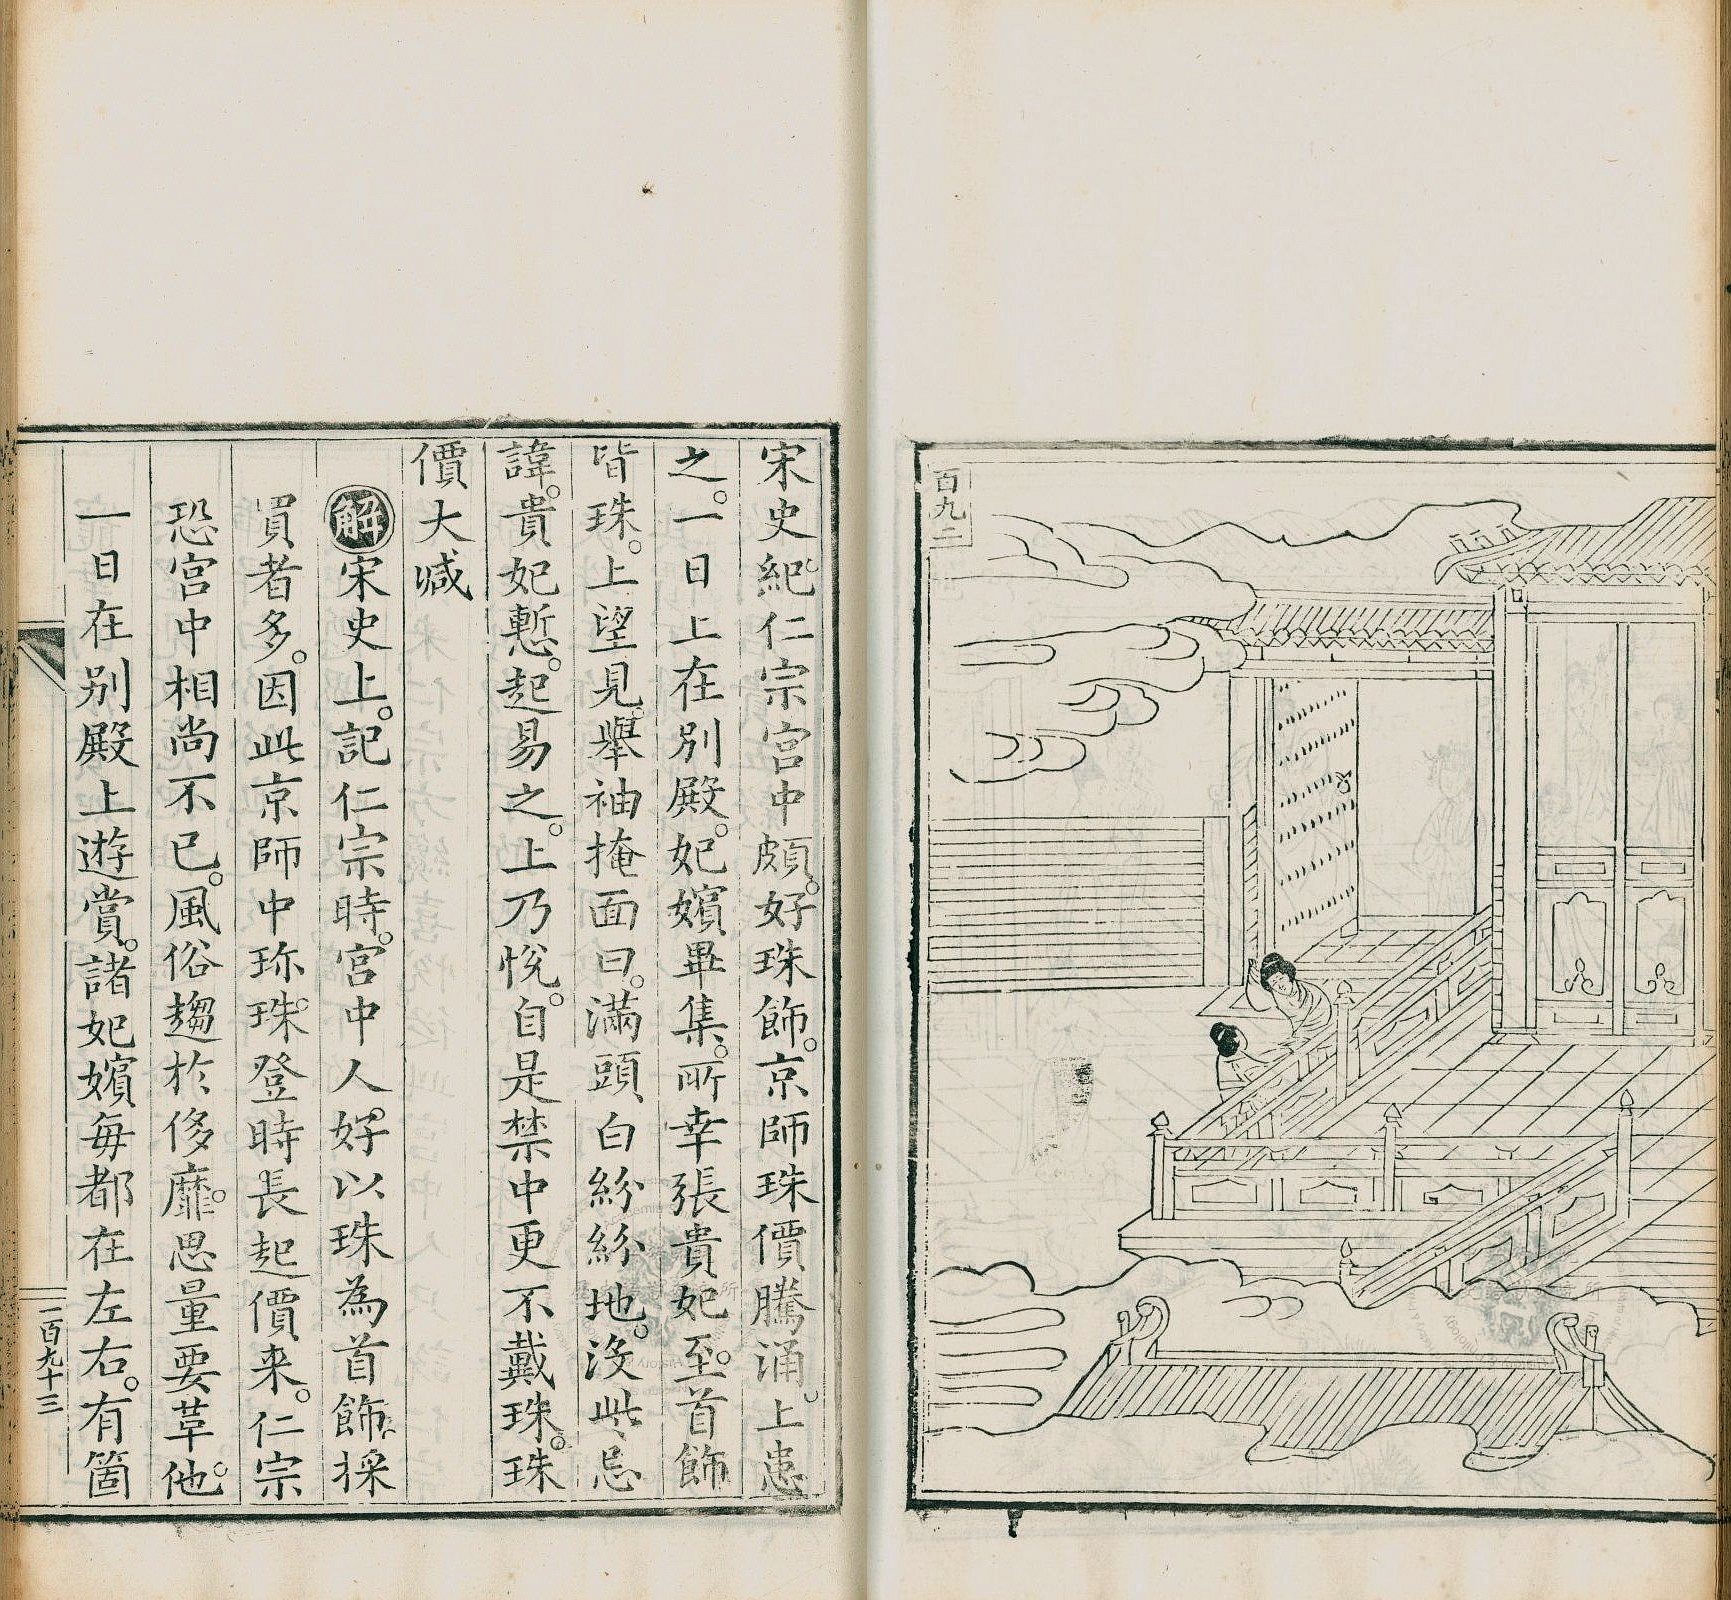 百九二
宋史紀。仁宗宮中頗。好珠飾。京師珠價騰涌。上患
之。一日上在別殿。妃嬪畢集。所幸張貴妃至。首飾
皆珠。上望見。舉袖掩面曰。滿頭白紛紛地。沒此、忌
諱。貴妃慙。起易之。上乃悅。自是禁中更不戴珠。珠
價大減
解宋史上。記仁宗時。宮中人。好以珠為首飾、採
買者多。因此京師中珎珠。登時長起價来。仁宗
恐宮中相尚不已。風俗趨於侈靡。思量要革他。
一日在別殿上遊賞。諸妃嬪每都在左右。有箇
一百九十三